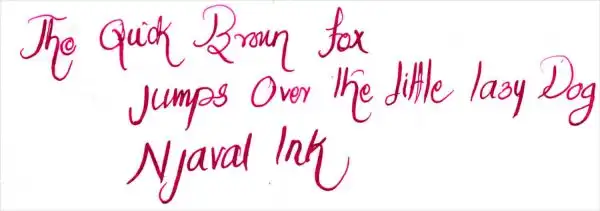 The Quick Brown fox
Jumps Over The little lazy Dog
Njaval Ink